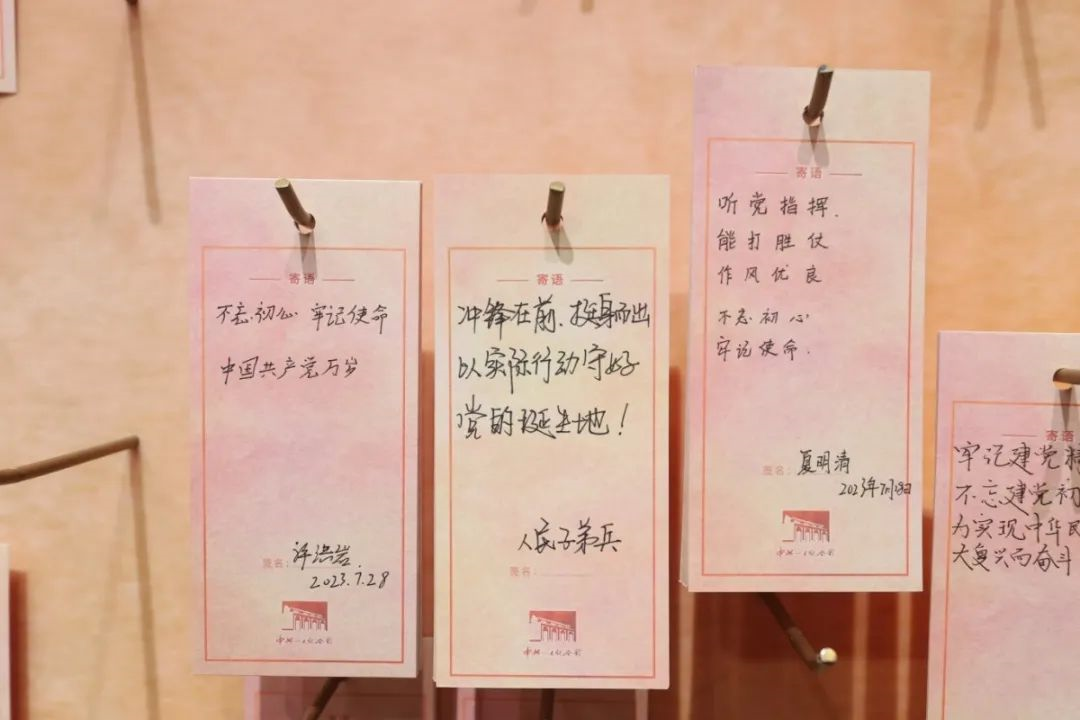 寄语
不忘初心 牢记使命
中国共产党万岁
签名：许洪岩
2023.7.28
寄语
冲锋在前、挺身而出
以实际行动守好
党的诞生地！
人民子弟兵
签名：
寄语
听党指挥.
能打胜仗
作风优良
不忘初心
牢记使命.
签名：夏明清
2023年7月28日
寄语
牢记建党精
不忘建党初
为实现中华民
大复兴而奋斗